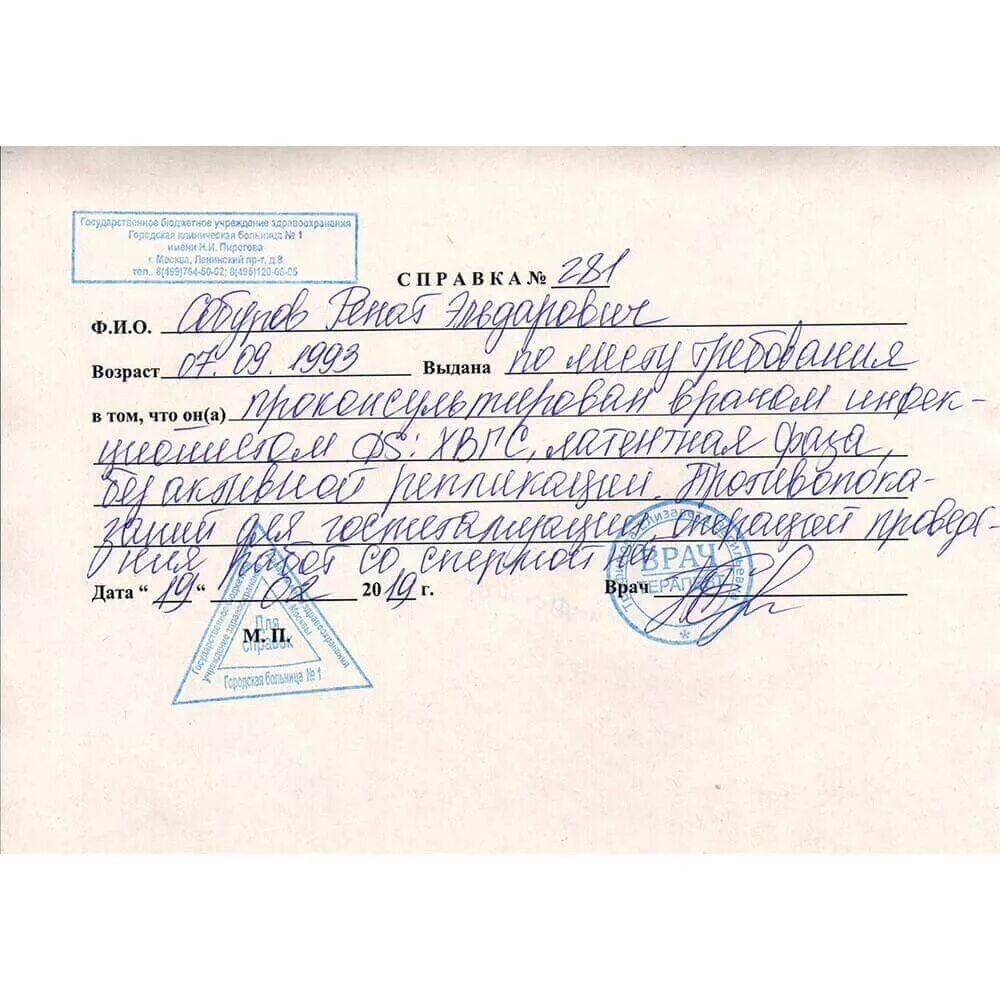 Государственное бюджетное учреждение здравоохранения
Городская клиническая больница № 1
имени Н.И. Пирогова
г. Москва, Ленинский пр-т, д.8
тел.. 8(499)764-50-02; 8(495)120-06-05
СПРАВКА № 281
Ф.И.О. Собуров Ренат Эльдарович
Возраст 07.09.1993 Выдана по месту требования
в том, что он(а) проконсультирован врачом инфек-
ционистом DS: ХВГС, латентная фаза,
без активной репликации. Противопока-
заний для госпитализации, операций проведе-
ния работ со спермой нет
Дата “ 19 “ 02 2019 г. Врач
ВРАЧ
ТЕРАПЕВТ
М. П.
Для
справок
Городская больница № 1